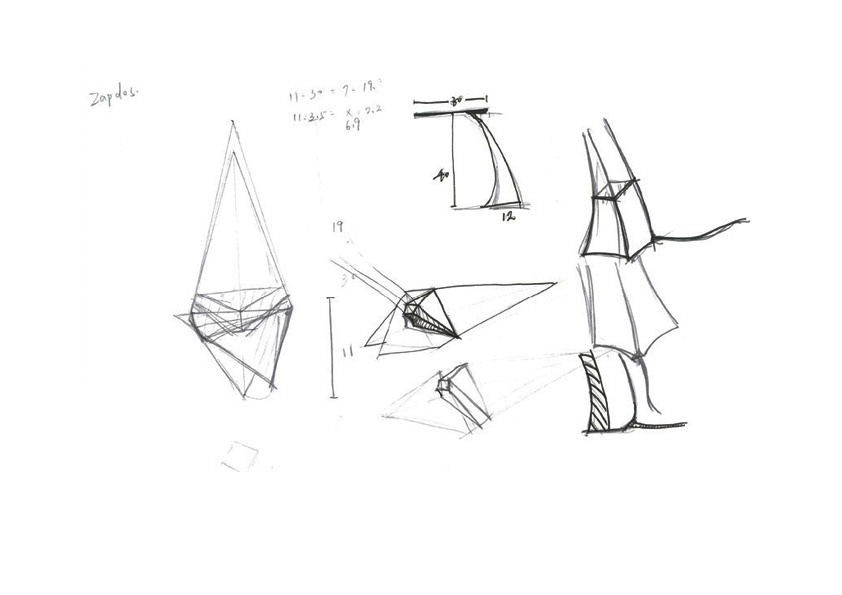 Zapdos.
11 : 30 = 7 : 19.
11 : 3.5 = x : 2.2
6.9
30
40
12
19
30
11